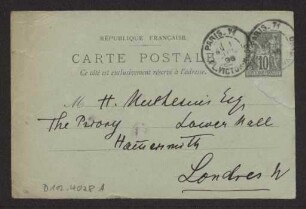 RÉPUBLIQUE FRANÇAISE
CARTE POSTALE
Ce côté est exclusivement réservé à l'adresse
PARIS
10
H. Muthesius Esq
The Priory Lower Mall
Hammersmith
Londres W
D 102-4028 A